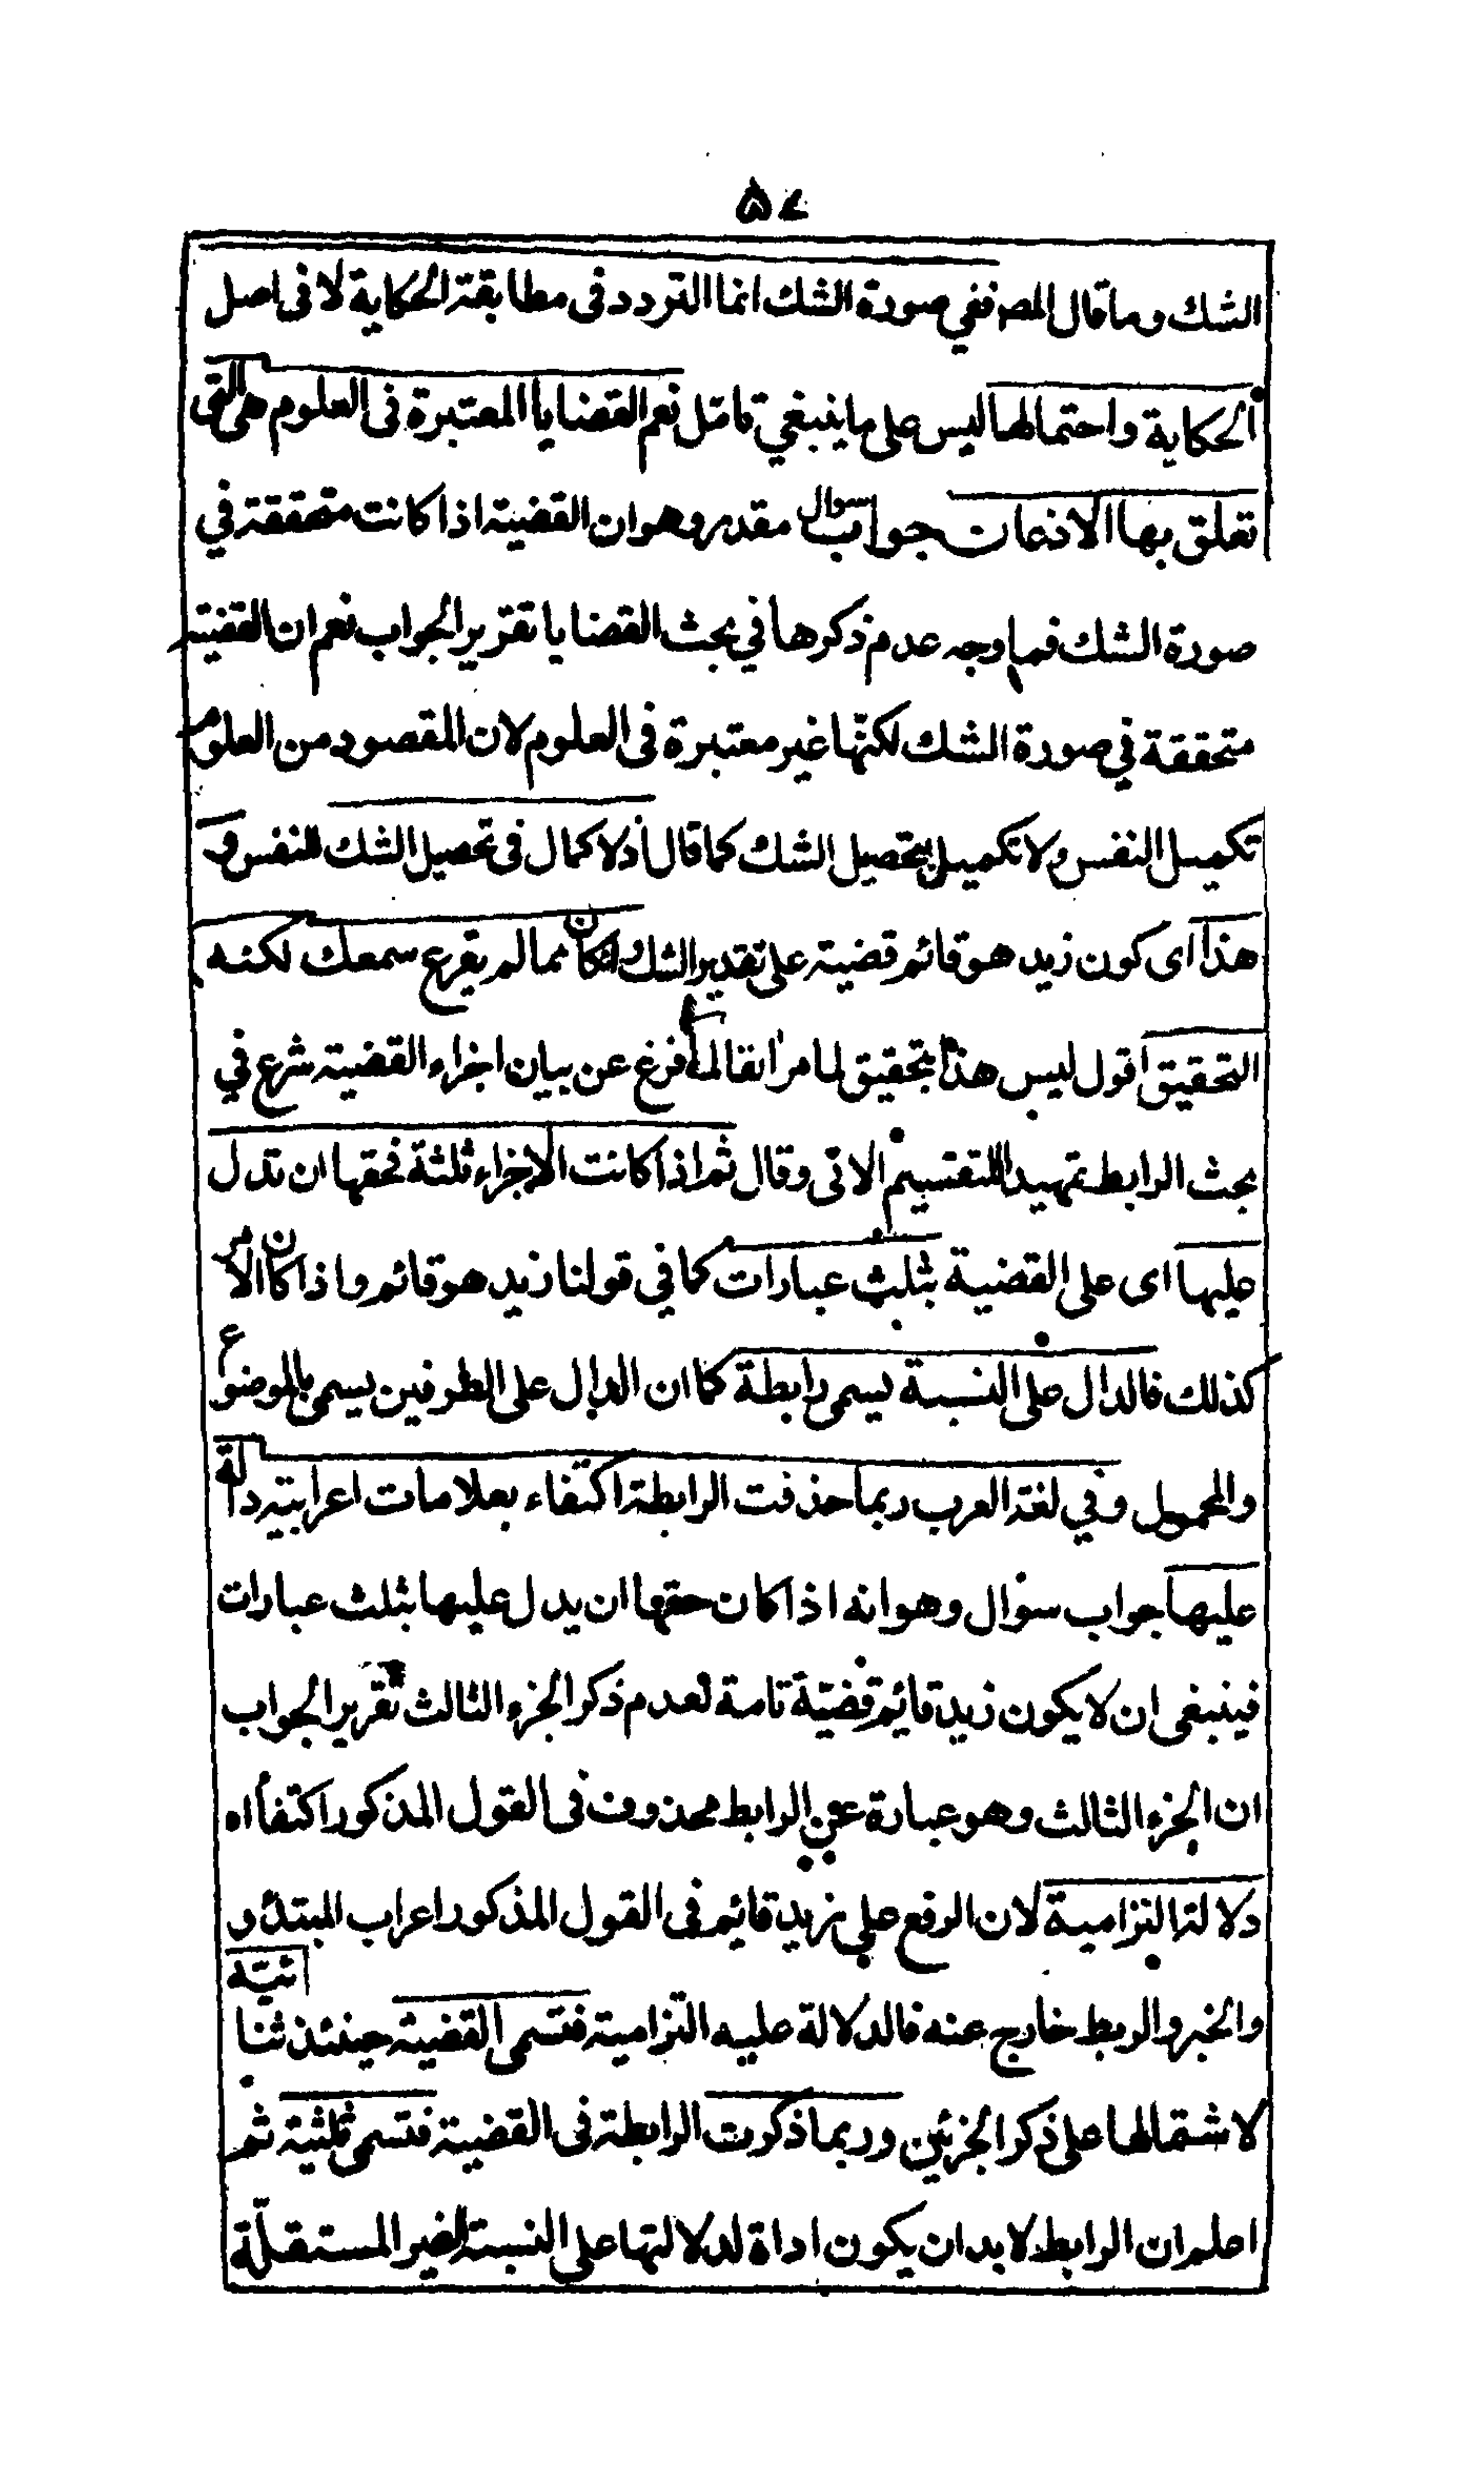 ۵۷
الشك وما قال المصـ ففي صورة الشك انما التردد فى مطابقة الحكاية لا فى اصل
الحكاية واحتمالها ليس على ما ينبغي تامّل نعم القضايا المعتبرة فى العلوم هى التى
تعلق بها الاذعان جواب سوال مقدر وهو ان القضية اذا كانت متحققة في
صورة الشك فما وجه عدم ذكرها في بحث القضايا تقرير الجواب نعم ان القضية
متحققة في صورة الشك لكنّها غير معتبرة فى العلوم لان المقصود من العلوم
تكميل النفس ولا تكميل بتحصيل الشك كما قال اذ لا كمال فى تحصيل الشك للنفس و
هذا اى كون زيد هو قائم قضية على تقدير الشك وان كان مما لم يقرع سمعك لكنه
التحقيق اقول ليس هذا بتحقيق لما مر انفا لما فرغ عن بيان اجزاء القضية شرع في
بحث الرابط تمهيدا للتقسيم الاتى وقال ثم اذا كانت الاجزاء ثلثة فحقها ان تدل
عليها اى على القضية بثلث عبارات كما في قولنا زيد هو قائم واذا كان الامر
كذلك فالدال على النسبة يسمى رابطة كما ان الدال على الطرفين يسمى بالموضوع
والمحمول وفي لغة العرب ربما حذفت الرابطة اكتفاء بعلامات اعرابية دالة
عليها جواب سوال وهو انه اذا كان حقها ان يدل عليها بثلث عبارات
فينبغى ان لا يكون زيد قائم قضيّة تامة لعدم ذكر الجزء الثالث تقرير الجواب
ان الجزء الثالث وهو عبارة عن الرابط محذوف فى القول المذكور اكتفأ اه
دلالة التزامية لان الرفع على زيد قائم فى القول المذكور اعراب المبتدأ و
والخبر والربط خارج عنه فالدلالة عليه التزامية فتسمى القضية حينئذ ثنائيّة
لاشتمالها على ذكر الجزئين وربما ذكرت الرابطة فى القضية فتسمى ثلثية ثم
اعلم ان الرابط لا بد ان يكون اداة لدلالتها على النسبة الغير المستقلّة